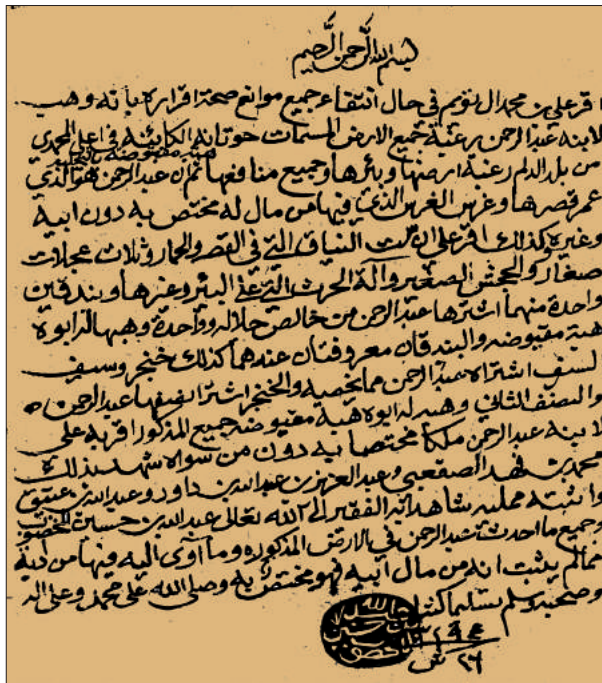 بسم الله الرحمن الرحيم
اقر علي بن محمد ال تويم في حال انتفاء جميع موانع صحة اقراره بانه وهب
لابنه عبد الرحمن برغبة جميع الارض المسمات حوتانه الكاينه في اعلى المحمدي
هبة مقبوضه بالتخليه
من بلد الدلم رغبة ارضها وبئرها وجميع منافعها ثم ان عبد الرحمن هو الذي
عمر قصرها وغرس الغرس الذي فيها من مال له مختص به دون ابيه
وغيره وكذلك اقر علي ان النياق التي في القصر والحمار وثلاث عجلات
صغار والجحش الصغير وآلة الحرث التي على البئر وغيرها وبندقين
واحدة منهما اشتراها عبد الرحمن من خالص حلاله وواحدة وهبها له ابوه
هبة مقبوضه والبندقان معروفتان عندهما كذلك خنجر وسيف
السيف اشتراه عبد الرحمن مما يخصه والخنجر اشترا نصفها عبد الرحمن
والنصف الثاني وهبه له ابوه هبة مقبوضه جميع المذكور اقر به علي
لابنه عبد الرحمن ملكا مختصا به دون من سواه شهد بذلك
محمد بن فهد الصقعبي وعبد العزيز بن عبد الله بن داود وعبد الله بن عتيق
واثبته ممليه شاهدا به الفقير الى الله تعالى عبد الله بن حسين المخضوب
وجميع ما احدث عبد الرحمن في الارض المذكوره وما آوى اليه فيها من ابيه
مما لم يثبت انه من مال ابيه فهو مختص به وصلى الله على محمد وعلى اله
وصحبه وسلم تسليما كثيرا